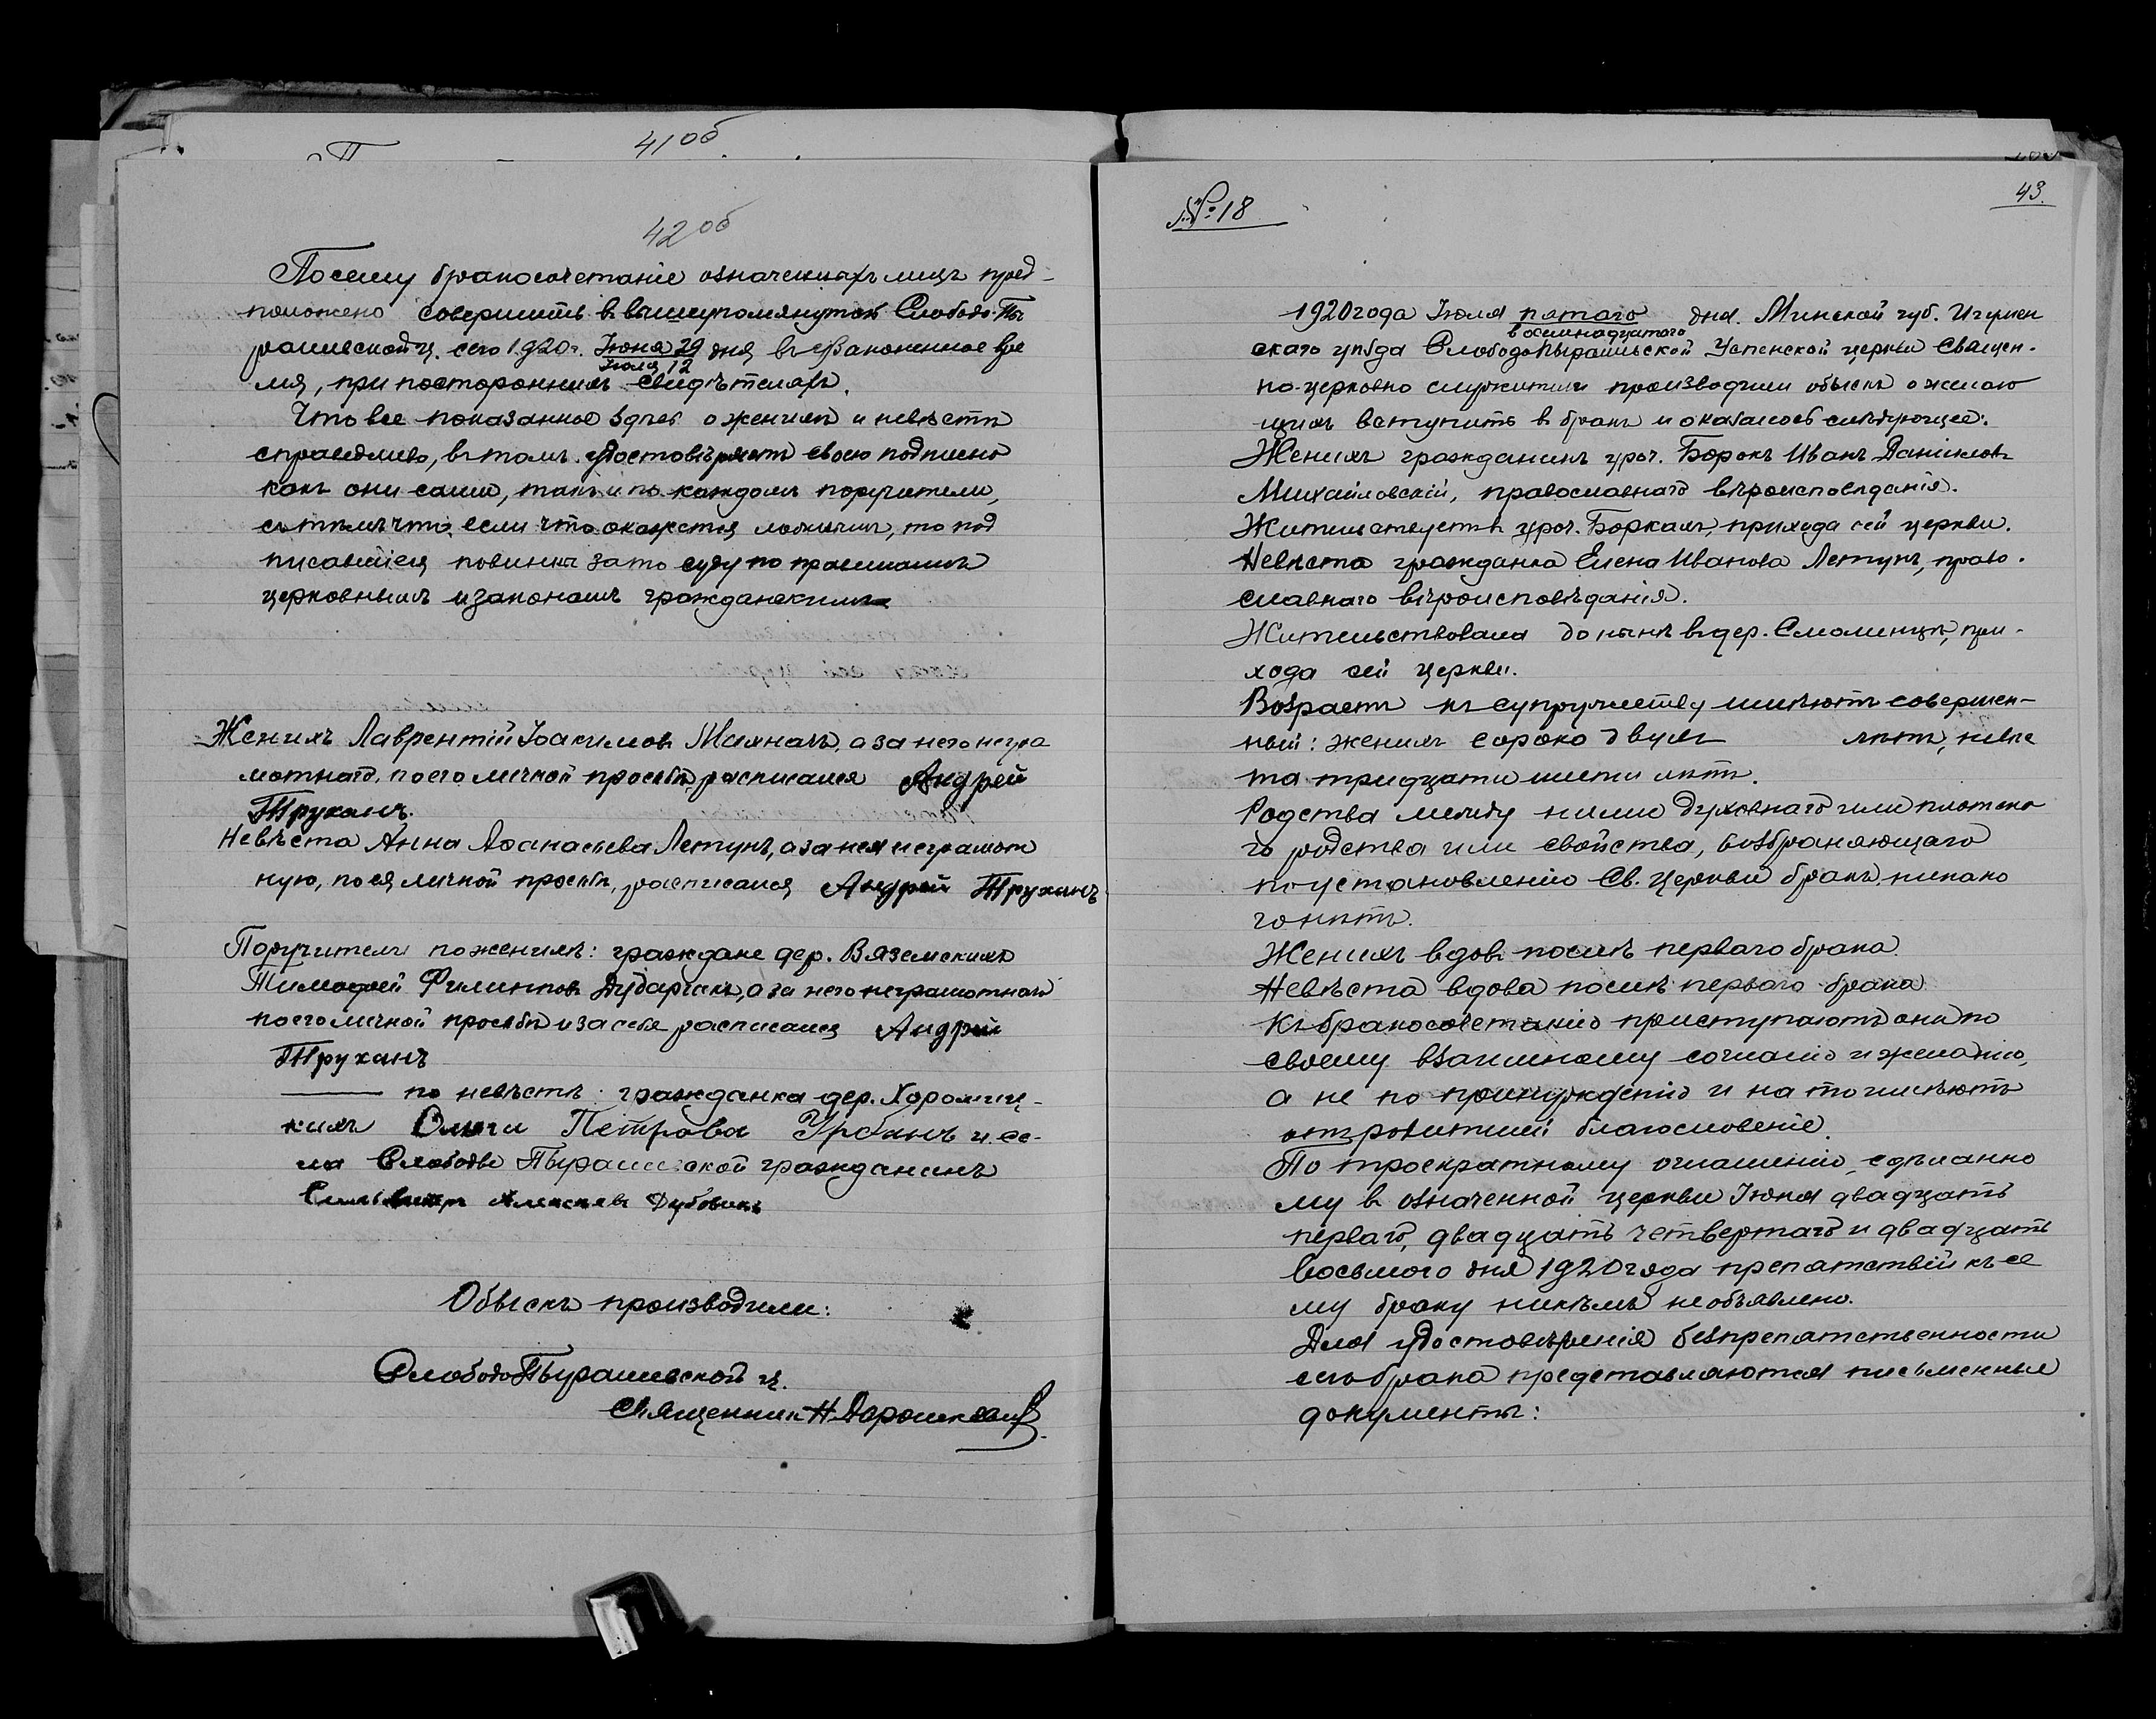 41 об
42 об
Посему бракосочетаніе означенныхъ лицъ пред-
положено совершить въ вышеупомянутой Слободо-Пы
рашевской ц. сего 1920 г. Іюня 29 дня въ узаконенное вре
Іюля 12
мя, при постороннихъ свидѣтеляхъ.
Что все показанное здѣсь о женихѣ и невѣстѣ
справедливо, въ томъ удостовѣряютъ своею подписью
какъ они сами, такъ и по каждомъ поручители,
съ тѣмъ что, если что окажется ложнымъ, то под
писавшіеся повинны за то суду по правиламъ
церковнымъ и законамъ гражданскимъ
Женихъ Лаврентій Іоакимовъ Малначъ, а за него негра
мотнаго, по его личной просьбѣ, росписался Андрей
Труханъ.
Невѣста Анна Аѳанасьева Летунъ, а за нея неграмот
ную, по ея личной просьбѣ, расписался Андрей Труханъ
Поручители по женихѣ: граждане дер. Вяземскихъ
Тимофей Филипповъ Дударчикъ, а за него неграмотнаго
по его личной просьбѣ и за себя расписался Андрей
Труханъ
— по невѣстѣ: гражданка дер. Хоромиц-
кихъ Ольги Петрова Урбанъ и се-
ла Слободы Пырашевской гражданинъ
Алексѣевъ Дубовикъ
Обыскъ производили:
СлободоПырашевской ц.
Священник Н. Дорошкевич
№ 18
43.
1920 года Іюля пятаго дня. Минской губ. Игумен
восемнадцатаго
скаго уѣзда СлободоПырашевской Успенской церкви Священ-
но-церковно служители производили обыскъ о желаю
щихъ вступить въ бракъ и оказалось слѣдующее:
Женихъ гражданинъ уроч. Борокъ Иванъ Даниловъ
Михайловскій, православнаго вѣроисповѣданія.
Жительствуетъ уроч. Боркахъ, прихода сей церкви.
Невѣста гражданка Елена Иванова Летунъ, право-
славнаго вѣроисповѣданія.
Жительствовала до нынѣ въ дер. Смолинцѣ, при-
хода сей церкви.
Возрастъ къ супружеству имѣютъ совершен-
ный: женихъ сорока двухъ лѣтъ, невѣс
та тридцати шести лѣтъ.
Родства между ними духовнаго или плотска
го родства или свойства, возбраняющаго
по установленію Св. Церкви бракъ, никако
го нѣтъ.
Женихъ вдовъ послѣ перваго брака.
Невѣста вдова послѣ перваго брака
Къ бракосочетанію приступаютъ они по
своему взаимному согласію и желанію,
а не по принужденію и на то имѣютъ
отъ родителей благословеніе.
По троекратному оглашенію, сдѣланно
му въ означенной церкви Іюня двадцать
перваго, двадцать четвертаго и двадцать
восьмого дня 1920 года препятствій къ се
му браку никѣмъ не объявлено.
Для удостовѣренія безпрепятственности
сего брака представляются письменные
документы: